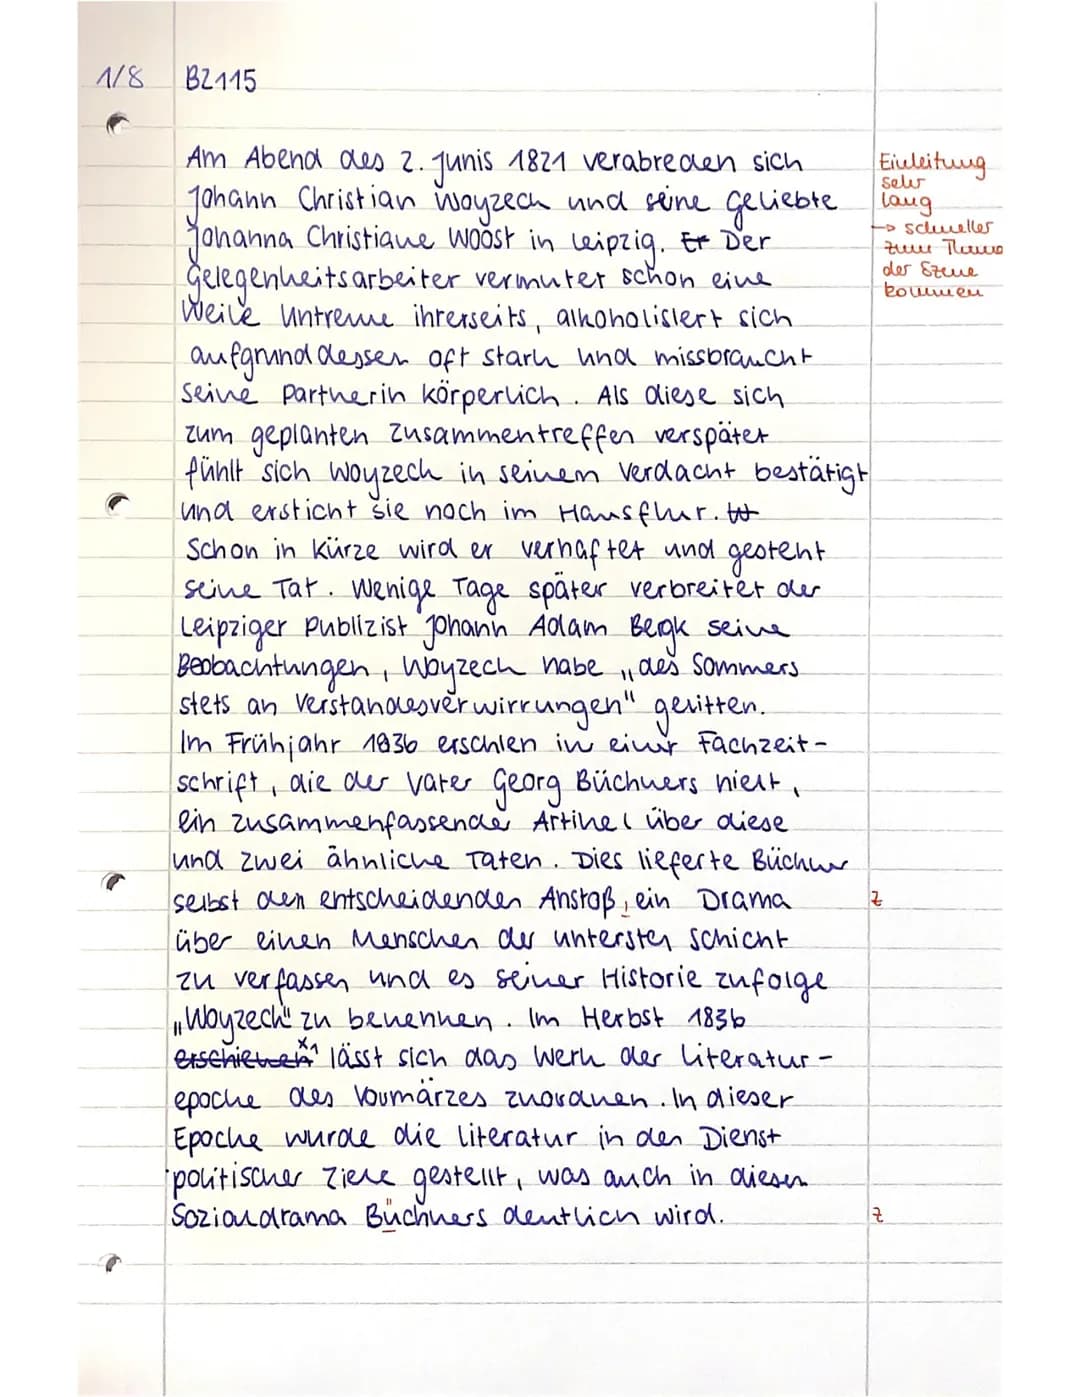 1/8 BZ115
Am Abend des 2. Junis 1821 verabreden sich
Johann Christian Woyzeck und seine Geliebte
Johanna Christiane Woost in Leipzig. Er Der
Gelegenheitsarbeiter vermutet schon eine
Weile Untreue ihrerseits, alkoholisiert sich
aufgrund dessen oft stark und missbraucht
seine Partnerin körperlich. Als diese sich
zum geplanten Zusammentreffen verspätet
fühlt sich Woyzeck in seinem Verdacht bestätigt
und ersticht sie noch im Hausflur.
Schon in Kürze wird er verhaftet und gesteht
seine Tat. Wenige Tage später verbreitet der
Leipziger Publizist Johann Adam Bergk seine
Beobachtungen, Woyzeck habe „des Sommers
stets an Verstandesverwirrungen" gelitten.
Im Frühjahr 1836 erschien in einer Fachzeit-
schrift, die der Vater Georg Büchners hielt,
ein zusammenfassender Artikel über diese
und zwei ähnliche Taten. Dies lieferte Büchner
selbst den entscheidenden Anstoß, ein Drama
über einen Menschen der untersten Schicht
zu verfassen und es seiner Historie zufolge
„Woyzeck" zu benennen. Im Herbst 1836
erschienen x1 lässt sich das Werk der Literatur-
epoche des Vormärzes zuordnen. In dieser
Epoche wurde die Literatur in den Dienst
politischer Ziele gestellt, was auch in diesem
Sozialdrama Büchners deutlich wird.
Einleitung
sehr
lang
→ schneller
zum Thema
der Szene
kommen
Z
Z